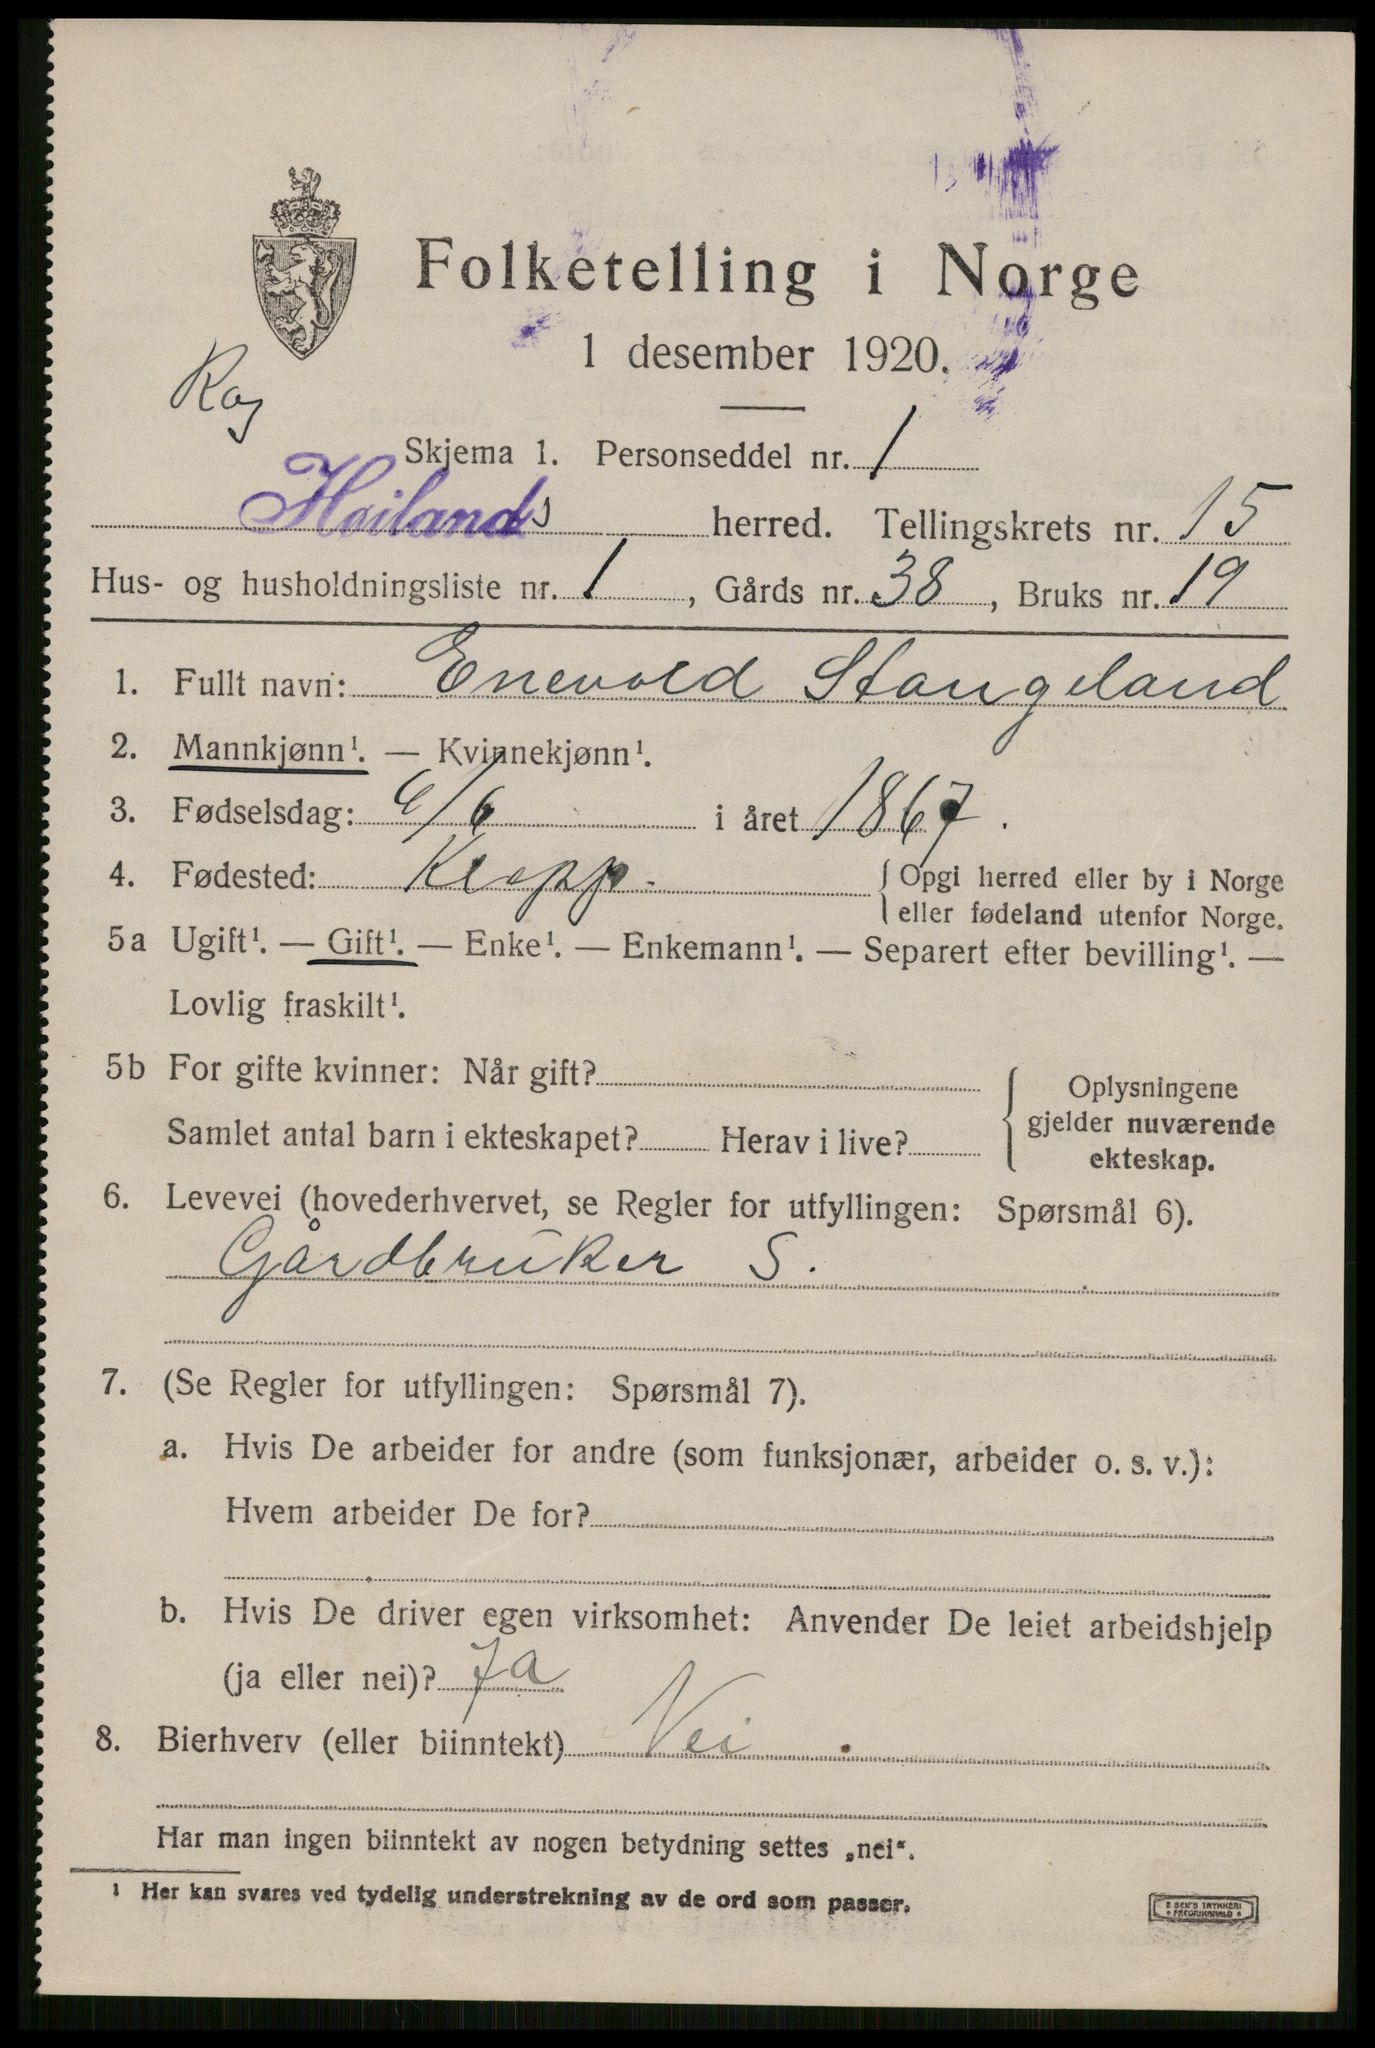 Folketelling i Norge
1 desember 1920.
Rog
Skjema 1. Personseddel nr. 1
Høilands herred. Tellingskrets nr. 15
Hus- og husholdningsliste nr. 1, Gårds nr. 38, Bruks nr. 19
1. Fullt navn: Enevold Stangeland
2. Mannkjønn¹. — Kvinnekjønn¹.
3. Fødselsdag: 6/6 i året 1867.
4. Fødested: Klepp. { Opgi herred eller by i Norge
eller fødeland utenfor Norge.
5a Ugift¹. — Gift¹. — Enke¹. — Enkemann¹. — Separert efter bevilling¹. —
Lovlig fraskilt¹.
5b For gifte kvinner: Når gift?
Samlet antal barn i ekteskapet? Herav i live?
Oplysningene
gjelder nuværende
ekteskap.
6. Levevei (hovederhvervet, se Regler for utfyllingen: Spørsmål 6).
Gårdbruker S.
7. (Se Regler for utfyllingen: Spørsmål 7).
a. Hvis De arbeider for andre (som funksjonær, arbeider o. s. v.):
Hvem arbeider De for?
b. Hvis De driver egen virksomhet: Anvender De leiet arbeidshjelp
(ja eller nei)? Ja
8. Bierhverv (eller biinntekt) Nei
Har man ingen biinntekt av nogen betydning settes „nei“.
¹ Her kan svares ved tydelig understrekning av de ord som passer.